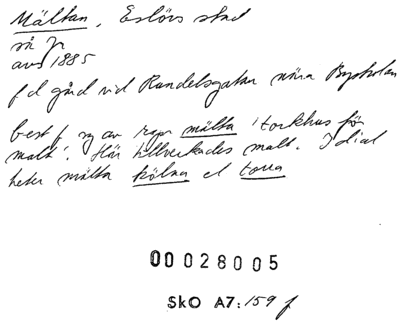 Mältan, Eslövs stad
så jr
avs 1885
f d gård vid Rundelsgatan nära Byskolan
best f sg av rspr mälta 'torkhus för
malt'. Här tillverkades malt. I dial
heter mälta kölna el torra
00028005
SkO A7:159 f